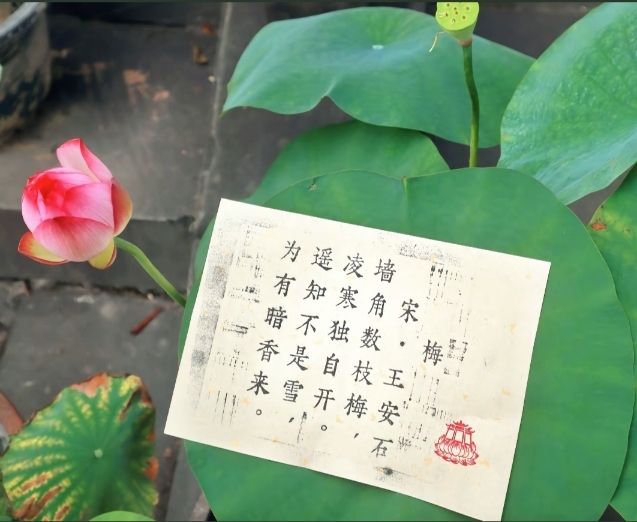 梅
宋·王安石
墙角数枝梅，
凌寒独自开。
遥知不是雪，
为有暗香来。